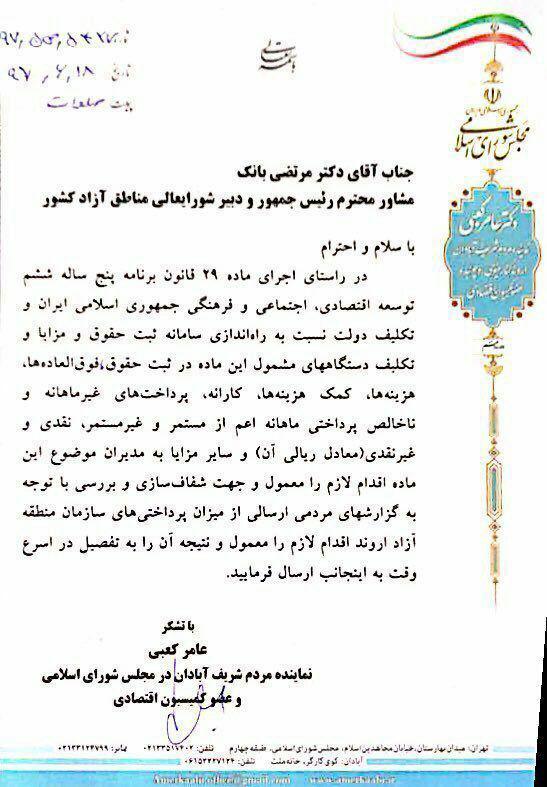 باسمه تعالی
تاریخ ۹۷٫۶٫۱۸
جمهوری اسلامی ایران
مجلس شورای اسلامی
دکتر عامر کعبی
جناب آقای دکتر مرتضی بانک
مشاور محترم رئیس جمهور و دبیر شورایعالی مناطق آزاد کشور
با سلام و احترام
در راستای اجرای ماده ۲۹ قانون برنامه پنج ساله ششم
توسعه اقتصادی، اجتماعی و فرهنگی جمهوری اسلامی ایران و
تکلیف دولت نسبت به راه‌اندازی سامانه ثبت حقوق و مزایا و
تکلیف دستگاههای مشمول این ماده در ثبت حقوق،فوق‌العاده‌ها،
هزینه‌ها، کمک هزینه‌ها، کارانه، پرداخت‌های غیرماهانه و
ناخالص پرداختی ماهانه اعم از مستمر و غیرمستمر، نقدی و
غیرنقدی(معادل ریالی آن) و سایر مزایا به مدیران موضوع این
ماده اقدام لازم را معمول و جهت شفاف‌سازی و بررسی با توجه
به گزارشهای مردمی ارسالی از میزان پرداختی‌های سازمان منطقه
آزاد اروند اقدام لازم را معمول و نتیجه آن را به تفصیل در اسرع
وقت به اینجانب ارسال فرمایید.
با تشکر
عامر کعبی
نماینده مردم شریف آبادان در مجلس شورای اسلامی
و عضو کمیسیون اقتصادی
تهران: میدان بهارستان، خیابان مجاهدین اسلام، مجلس شورای اسلامی، طبقه چهارم تلفن: نمابر: ۰۲۱۳۳۱۲۴۷۹۹
آبادان: کوی کارگر، خانه ملت تلفن: ۰۶۱۵۳۲۲۷۱۲۴